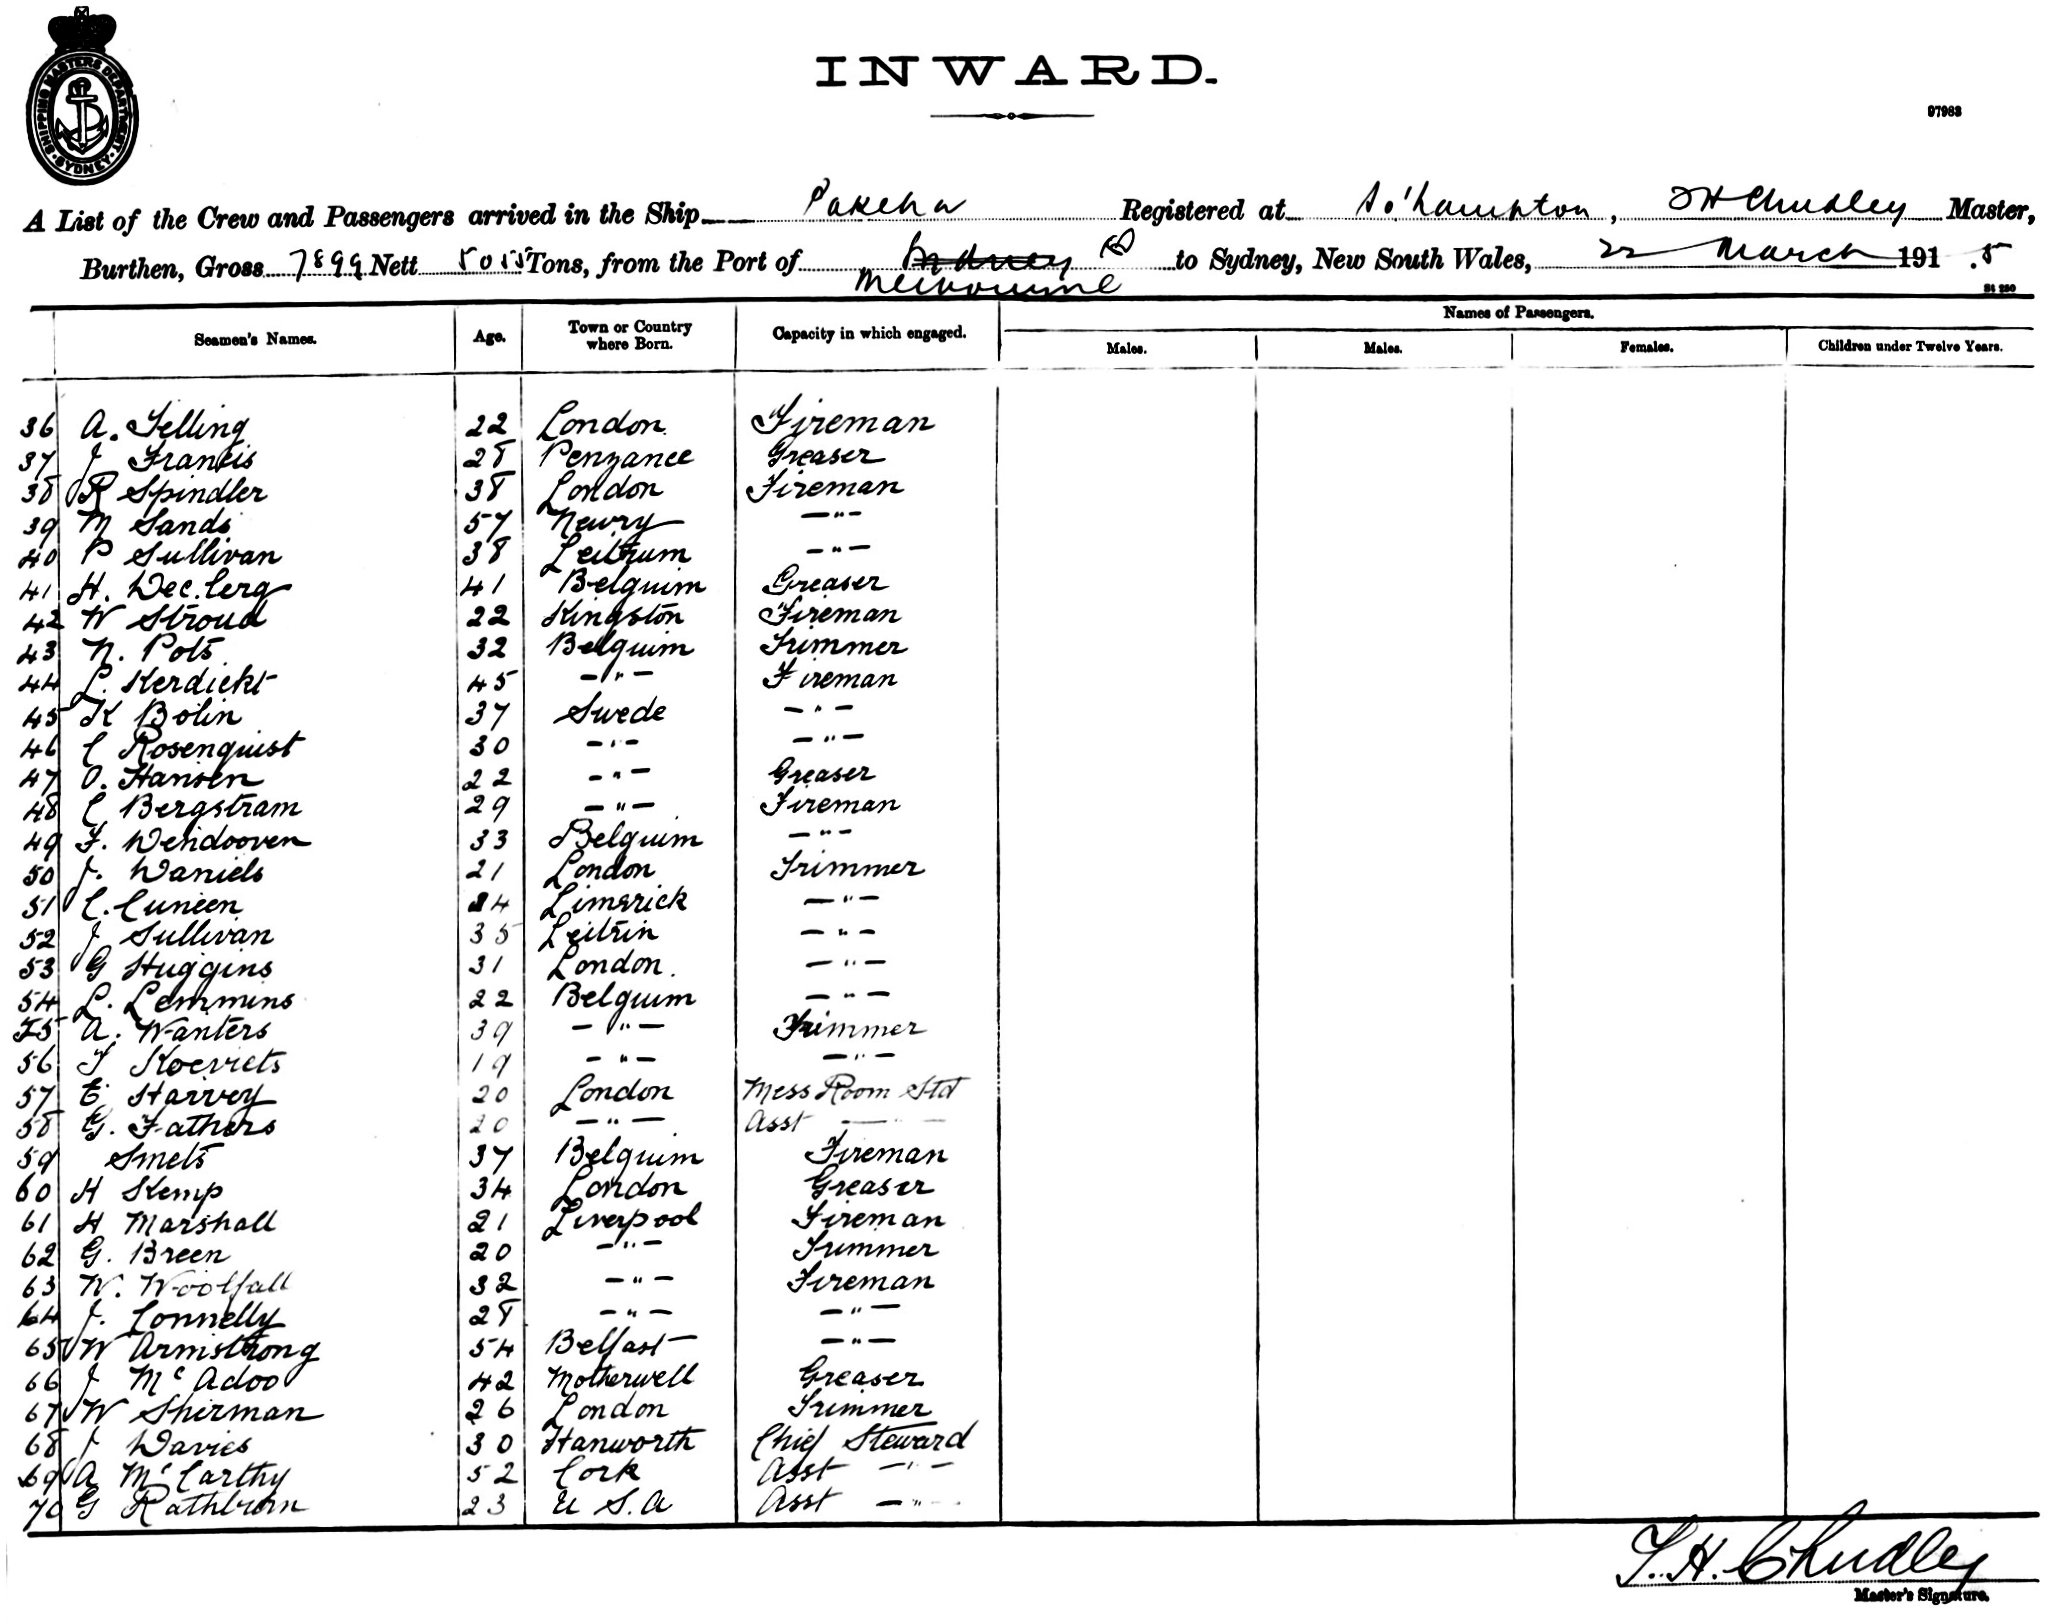 SHIPPING MASTERS DEPARTMENT SYDNEY
INWARD.
97963
A List of the Crew and Passengers arrived in the Ship Pakeha Registered at So'hampton, T H Chudley Master,
Burthen, Gross 7899 Nett Tons, from the Port of Sydney to Sydney, New South Wales, 22 March 1915
Melbourne
St 250
Names of Passengers.
Seamen's Names. Age. Town or Country where Born. Capacity in which engaged. Males. Males. Females. Children under Twelve Years.
36 A. Telling 22 London Fireman
37 J Francis 28 Penzance Greaser
38 R Spindler 38 London Fireman
39 M Sands 57 Newry — " —
40 P Sullivan 38 Leitrum — " —
41 H. Dec.lerq 41 Belguim Greaser
42 W Stroud 22 Kingston Fireman
43 N. Pots 32 Belguim Trimmer
44 L. Kerdickt 45 — " — Fireman
45 K Bolin 37 Swede — " —
46 C Rosenquist 30 — " — — " —
47 O. Hansen 22 — " — Greaser
48 C Bergstram 29 — " — Fireman
49 F. Wendooven 33 Belguim — " —
50 J. Daniels 21 London Trimmer
51 C. Cuneen 24 Limerick — " —
52 J Sullivan 35 Leitrin — " —
53 G Huggins 31 London. — " —
54 L. Lemmins 22 Belguim — " —
55 A. Wanters 39 — " — Trimmer
56 T Koeviets 19 — " — — " —
57 E Harvey 20 London Mess Room Std
58 G. Fathers 20 — " — Asst — " —
59 Smets 37 Belguim Fireman
60 H Kemp 34 London Greaser
61 H Marshall 21 Liverpool Fireman
62 G. Breen 20 — " — Trimmer
63 W. Woolfall 32 — " — Fireman
64 J. Connelly 28 — " — — " —
65 W Armstrong 54 Belfast — " —
66 J McAdoo 42 Motherwell Greaser
67 W Sherman 26 London Trimmer
68 J Davies 30 Hanworth Chief Steward
69 A McCarthy 52 Cork Asst — " —
70 G Rathburn 23 U S. A Asst — " —
T. H. Chudley
Master's Signature.